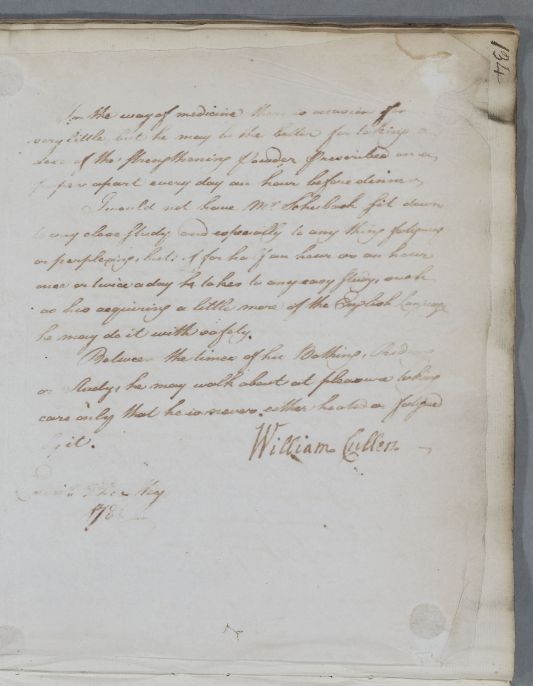 134
In the way of medicine there is occasion for
very little, but he may be the better for taking a
dose of the Strengthening Powder prescribed on a
paper apart every day an hour before dinner
I would not have Mr Schuback sit down
to any close Study and especially to any thing fatiguing
or perplexing, but if for half an hour or an hour
once or twice a day he takes to any easy Study, such
as his acquiring a little more of the English Language
he may do it with safety.
Between the times of his Bathing,
or Study, he may walk about at pleasure taking
care only that he is never either heated or fatigued
by it.
William Cullen